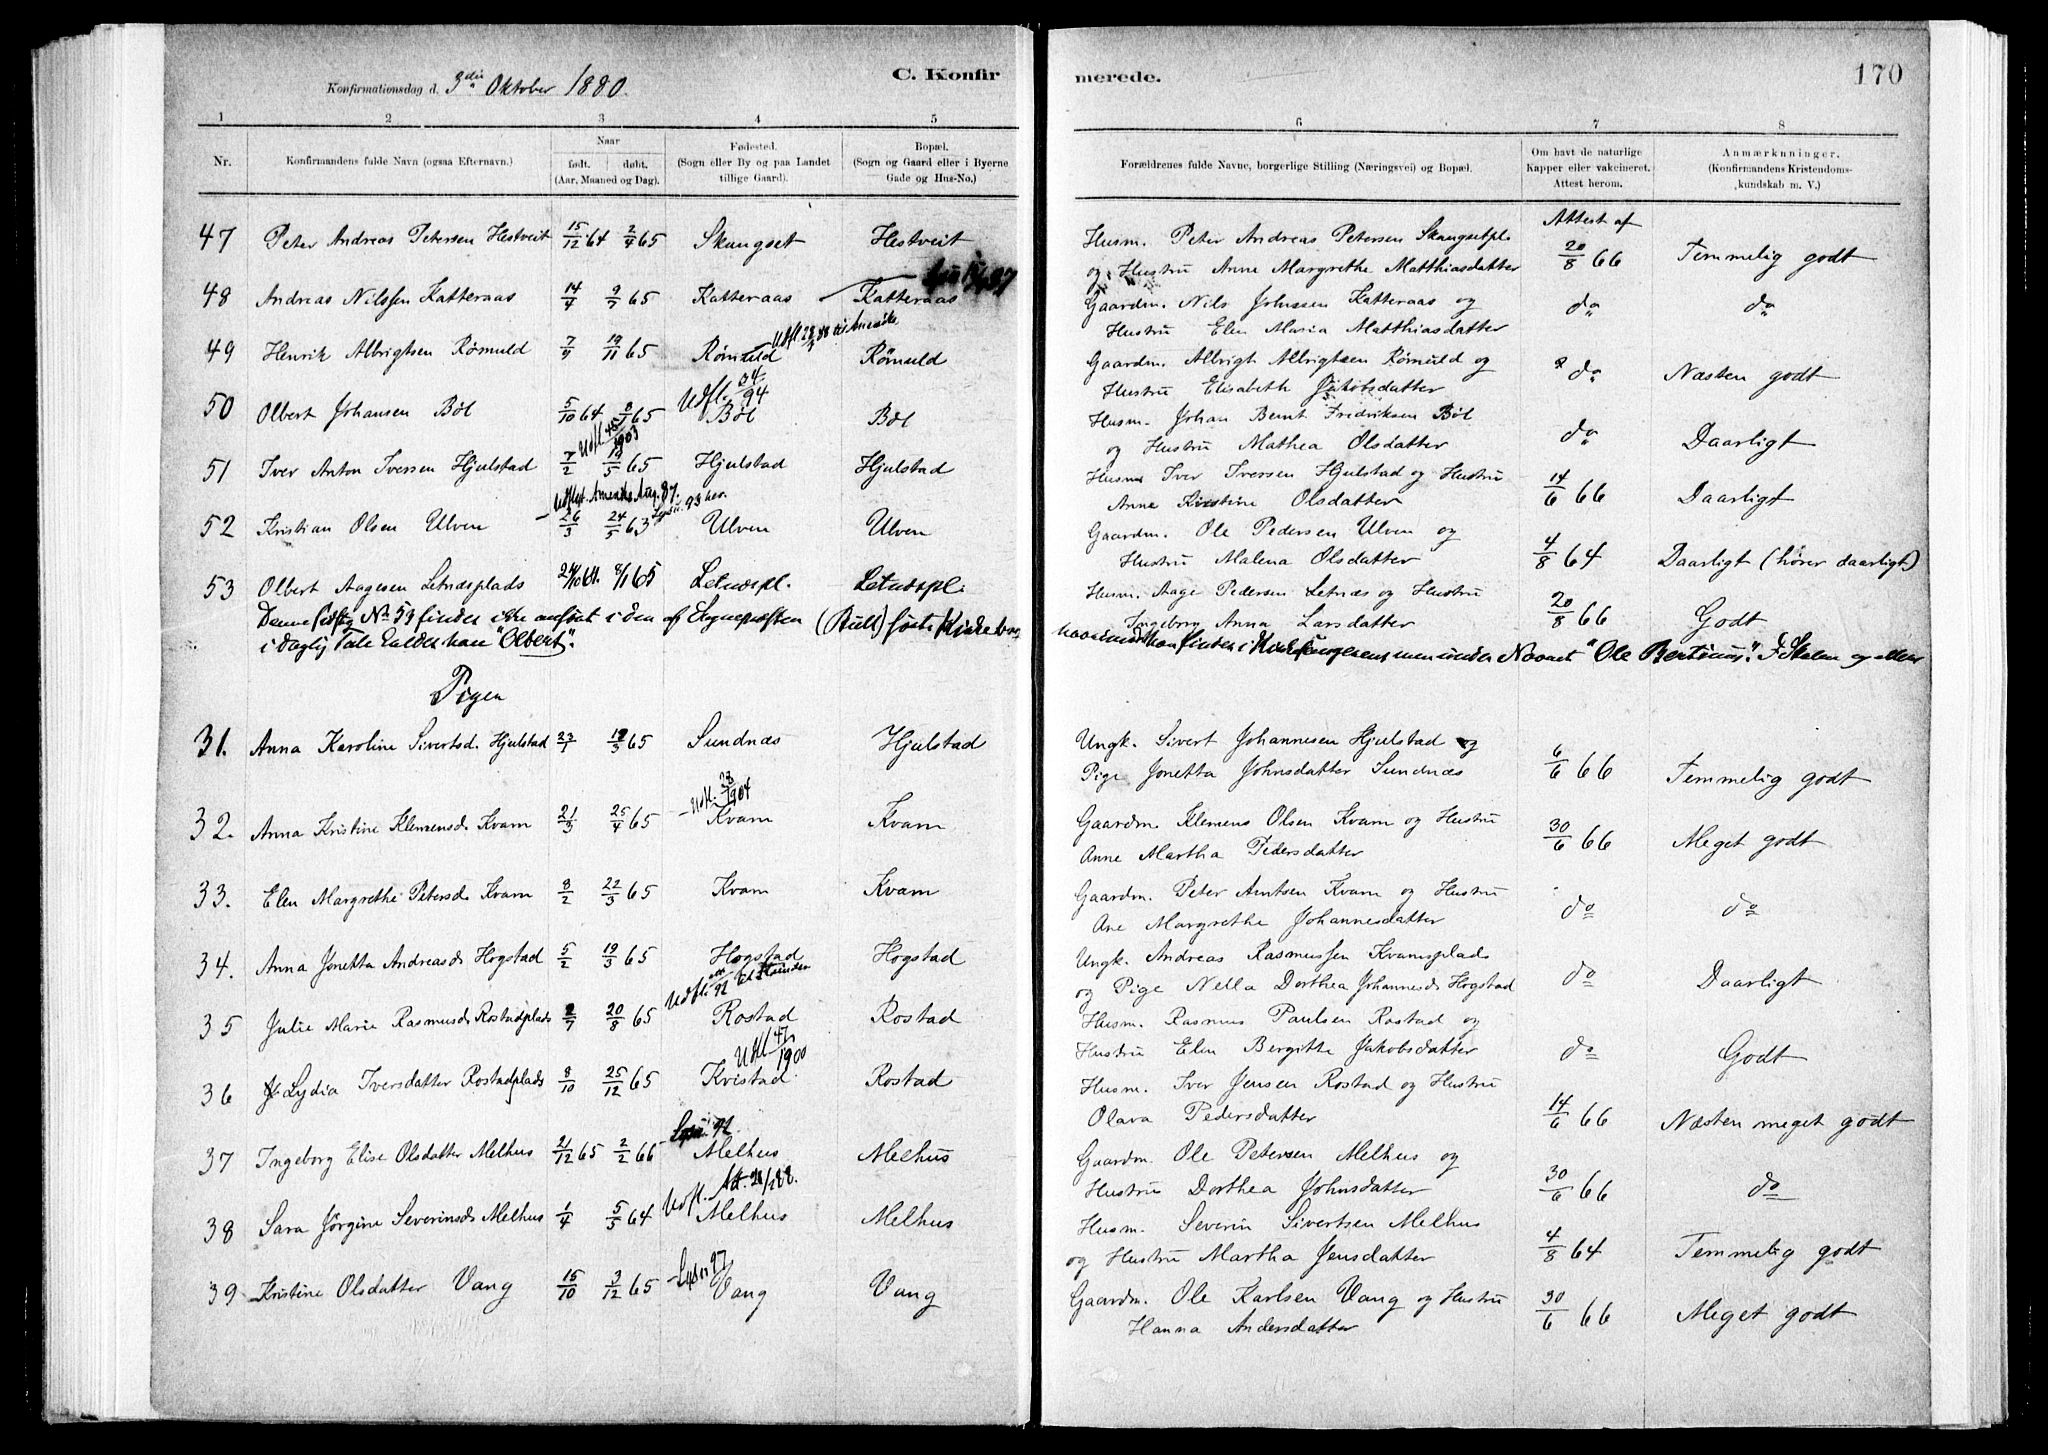 C. Konfir
merede.
170
Konfirmationsdag d. 3die Oktober 1880.
1 2 3 4 5 6 7 8
Nr.
Konfirmandens fulde Navn (ogsaa Efternavn.)
Naar
født. døbt.
(Aar, Maaned og Dag).
Fødested.
(Sogn eller By og paa Landet
tillige Gaard).
Bopæl.
(Sogn og Gaard eller i Byerne
Gade og Hus-No.)
Forældrenes fulde Navne, borgerlige Stilling (Næringsvei) og Bopæl.
Om havt de naturlige
Kapper eller vakcineret.
Attest herom.
Anmærkninger.
(Konfirmandens Kristendoms-
kundskab m. V.)
47 Peter Andreas Petersen Hestveit 15/12 64 2/4 65 Skangset Hestveit
Husm. Peter Andreas Petersen Skangsetpl.
og Hustru Anne Margrethe Matthiasdatter
Attest af
20/8 66 Temmelig godt
48 Andreas Nilssen Katteraas 14/4 9/7 65 Katteraas Katteraas
Gaardm. Nils Johnsen Katteraas og
Hustru Elen Maria Matthiasdatter
do do
Udfl. 28/3 88 til Amerika
49 Henrik Albrigtsen Rømuld 7/9 19/11 65 Rømuld Rømuld
Gaardm. Albrigt Albrigtsen Rømuld og
Hustru Elisabeth Jakobsdatter
do Næsten godt
Udfl. 34/94
50 Olbert Johansen Bøl 5/10 64 8/1 65 Bøl Bøl
Husm. Johan Bernt Fredriksen Bøl
og Hustru Mathea Olsdatter
do Daarligt
Udfl 45/1903
51 Iver Anton Iversen Hjulstad 7/2 19/5 65 Hjulstad Hjulstad
Husm Iver Iversen Hjulstad og Hustru
Anne Kristine Olsdatter
14/6 66 Daarligt
Udflyt. Amerika Aug. 87.
52 Kristian Olsen Ulven 26/3 24/5 63 Ulven Ulven
Gaardm. Ole Pedersen Ulven og
Hustru Malena Olsdatter
4/8 64 Daarligt (hører daarligt)
53 Olbert Aagesen Letnæsplads 24/10 64. 8/1 65 Letnæspl. Letnæspl.
Husm. Aage Pedersen Letnæs og Hustru
Ingeborg Anna Larsdatter
20/8 66 Godt
Denne No 53 findes ikke anført i den af Sognepræsten (Bull) førte Kirkebog
han findes i men under Navnet "Ole Bertinus". I Skolen og ellers
i daglig Tale kaldes han "Olbert".
Pigen
31. Anna Karoline Sivertsd. Hjulstad 23/1 12/3 65 Sundnæs Hjulstad
Ungk. Sivert Johannesen Hjulstad og
Pige Jonetta Johnsdatter Sundnæs
6/6 66 Temmelig godt
Udfl. 28/1904
32. Anna Kristine Klemensd. Kvam 21/3 25/4 65 Kvam Kvam
Gaardm. Klemens Olsen Kvam og Hustru
Anne Martha Pedersdatter
30/6 66 Meget godt
33. Elen Margrethe Petersd. Kvam 8/2 22/3 65 Kvam Kvam
Gaardm. Peter Arntsen Kvam og Hustru
Ane Margrethe Johannesdatter
do do
34. Anna Jonetta Andreasd. Hogstad 5/2 19/3 65 Hogstad Hogstad
Ungk. Andreas Rasmussen Kvamsplads
og Pige Nella Dorthea Johannesd. Hogstad
do Daarligt
35 Julie Marie Rasmusd. Rostadplads 2/7 20/8 65 Rostad Rostad
Husm. Rasmus Paulsen Rostad og
Hustru Elen Bergitte Jakobsdatter
do Godt
Udfl 47/1900
36 Lydia Iversdatter Rostadplads 8/10 25/12 65 Kvistad Rostad
Husm. Iver Jensen Rostad og Hustru
Olava Pedersdatter
14/6 66 Næsten meget godt
37 Ingeborg Elise Olsdatter Melhus 21/12 65 2/2 66 Melhus Melhus
Gaardm. Ole Petersen Melhus og
Hustru Dorthea Johnsdatter
30/6 66 do
Udfl. Att.
38 Sara Jørgine Severinsd. Melhus 1/4 5/5 64 Melhus Melhus
Husm. Severin Sivertsen Melhus
og Hustru Martha Jensdatter
4/8 64 Temmelig godt
39 Kristine Olsdatter Vang 15/10 3/12 65 Vang Vang
Gaardm. Ole Karlsen Vang og Hustru
Hanna Andersdatter
30/6 66 Meget godt